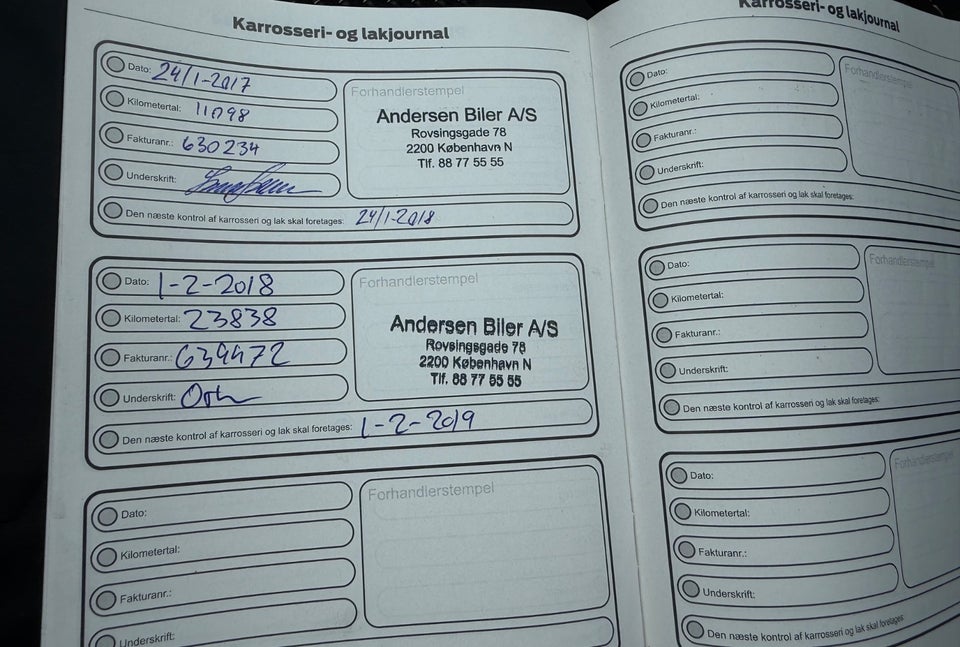 Karrosseri- og lakjournal
Dato: 24/1-2017
Kilometertal: 11098
Fakturanr.: 630234
Underskrift:
Forhandlerstempel
Andersen Biler A/S
Rovsingsgade 78
2200 København N
Tlf. 88 77 55 55
Den næste kontrol af karrosseri og lak skal foretages: 24/1-2018
Dato: 1-2-2018
Kilometertal: 23838
Fakturanr.: 639472
Underskrift:
Forhandlerstempel
Andersen Biler A/S
Rovsingsgade 78
2200 København N
Tlf. 88 77 55 55
Den næste kontrol af karrosseri og lak skal foretages: 1-2-2019
Dato:
Kilometertal:
Fakturanr.:
Underskrift:
Forhandlerstempel
Karrosseri- og lakjournal
Dato:
Kilometertal:
Fakturanr.:
Underskrift:
Forhandlerstempel
Den næste kontrol af karrosseri og lak skal foretages:
Dato:
Kilometertal:
Fakturanr.:
Underskrift:
Forhandlerstempel
Den næste kontrol af karrosseri og lak skal foretages:
Dato:
Kilometertal:
Fakturanr.:
Underskrift:
Forhandlerstempel
Den næste kontrol af karrosseri og lak skal foretages: